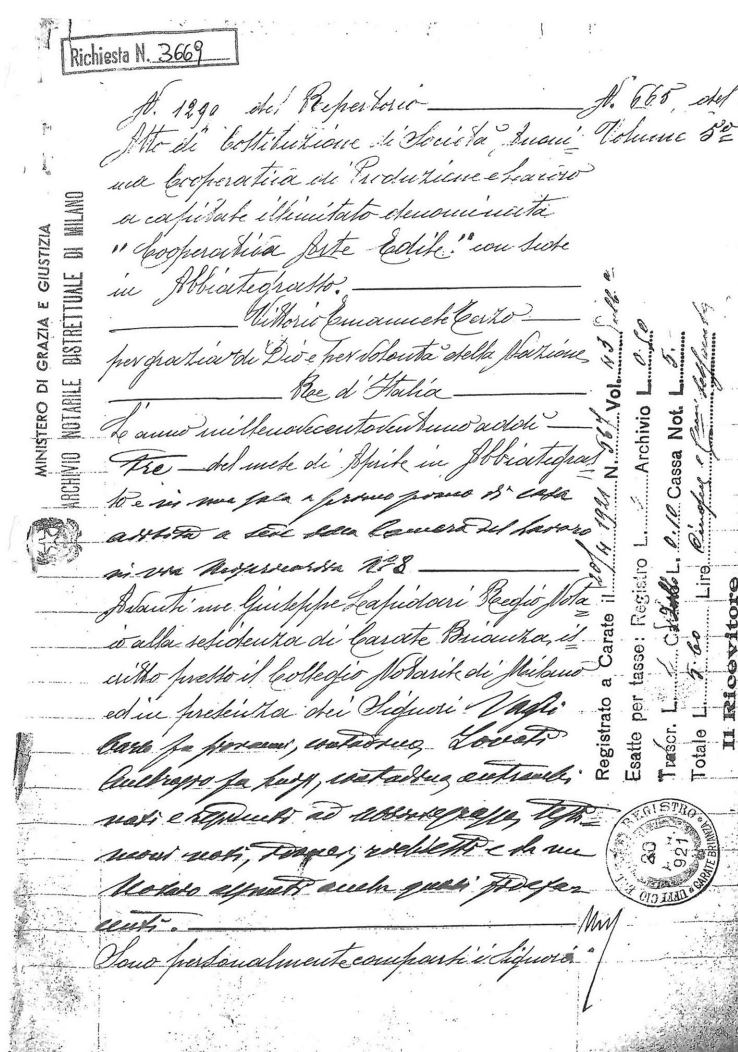 Richiesta N. 3669
N. 1290 del Repertorio N. 665 del
Atto di Costituzione di Società Anoni- Volume 5º
ma Cooperativa di Produzione e Lavoro
a capitale illimitato denominata
"Cooperativa Arte Edile" con sede
in Abbiategrasso.
Vittorio Emanuele Terzo
per grazia di Dio e per volontà della Nazione
Re d'Italia
L'anno millenovecentoventuno addì
tre del mese di Aprile in Abbiategras
so e in una sala a primo piano di casa
adibita a sede della Camera del Lavoro
in via Misericordia Nº 8
Avanti me Giuseppe Lapidari Regio Nota
io alla residenza di Carate Brianza, is
critto presso il Collegio Notarile di Milano
ed in presenza dei Signori Vagli
Carlo fu Giovanni, contadino, Lovati
Ambrogio fu Luigi, contadino, entrambi
nati e residenti ad Abbiategrasso, testi-
moni noti, idonei, richiesti e da me
Notaro assunti anche quali fidefa-
centi.
Sono personalmente comparsi i Signori:
MINISTERO DI GRAZIA E GIUSTIZIA
ARCHIVIO NOTARILE DISTRETTUALE DI MILANO
Registrato a Carate il 20/4 1921 N. 567 Vol. 43
Esatte per tasse: Registro L. Archivio L. 0.50
Trascr. L. L. 0.10 Cassa Not. L. 5.
Totale L. 5.60 Lire Cinque e
Il Ricevitore
UFFICIO REGISTRO CARATE BRIANZA
20
921